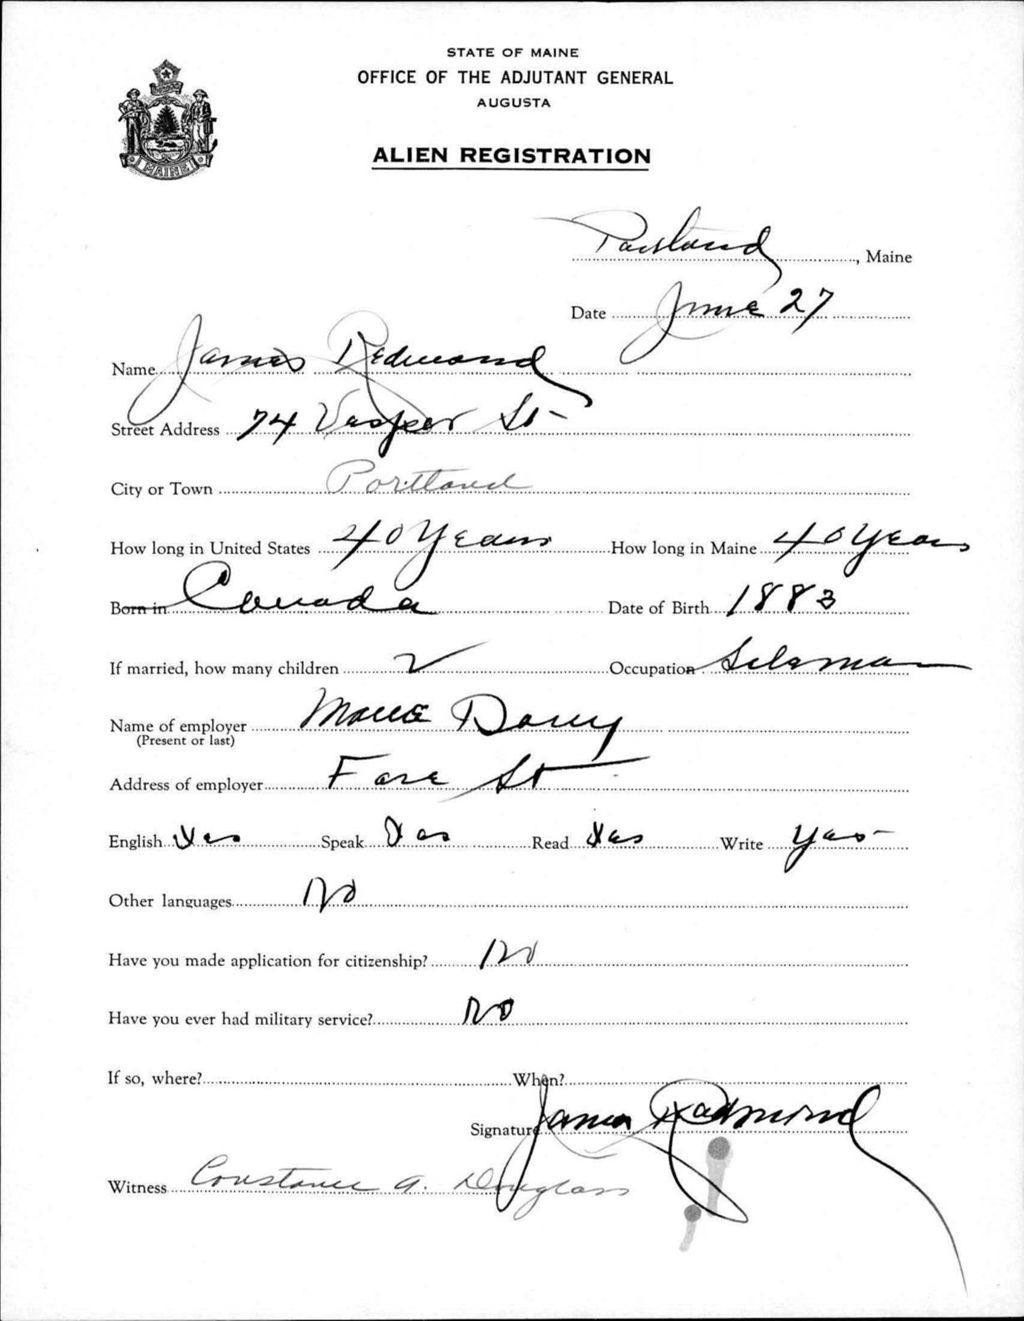 STATE OF MAINE
OFFICE OF THE ADJUTANT GENERAL
AUGUSTA
MAINE
ALIEN REGISTRATION
Portland, Maine
Date June 27
Name James Redmond
Street Address 74 Vesper St-
City or Town Portland
How long in United States 40 Years How long in Maine 40 Years
Born in Canada Date of Birth 1883
If married, how many children 2 Occupation
Name of employer
(Present or last)
Address of employer Fore St
English Yes Speak Yes Read Yes Write Yes-
Other languages No
Have you made application for citizenship? No
Have you ever had military service? No
If so, where? When?
Signature James Redmond
Witness Constance A. Douglass